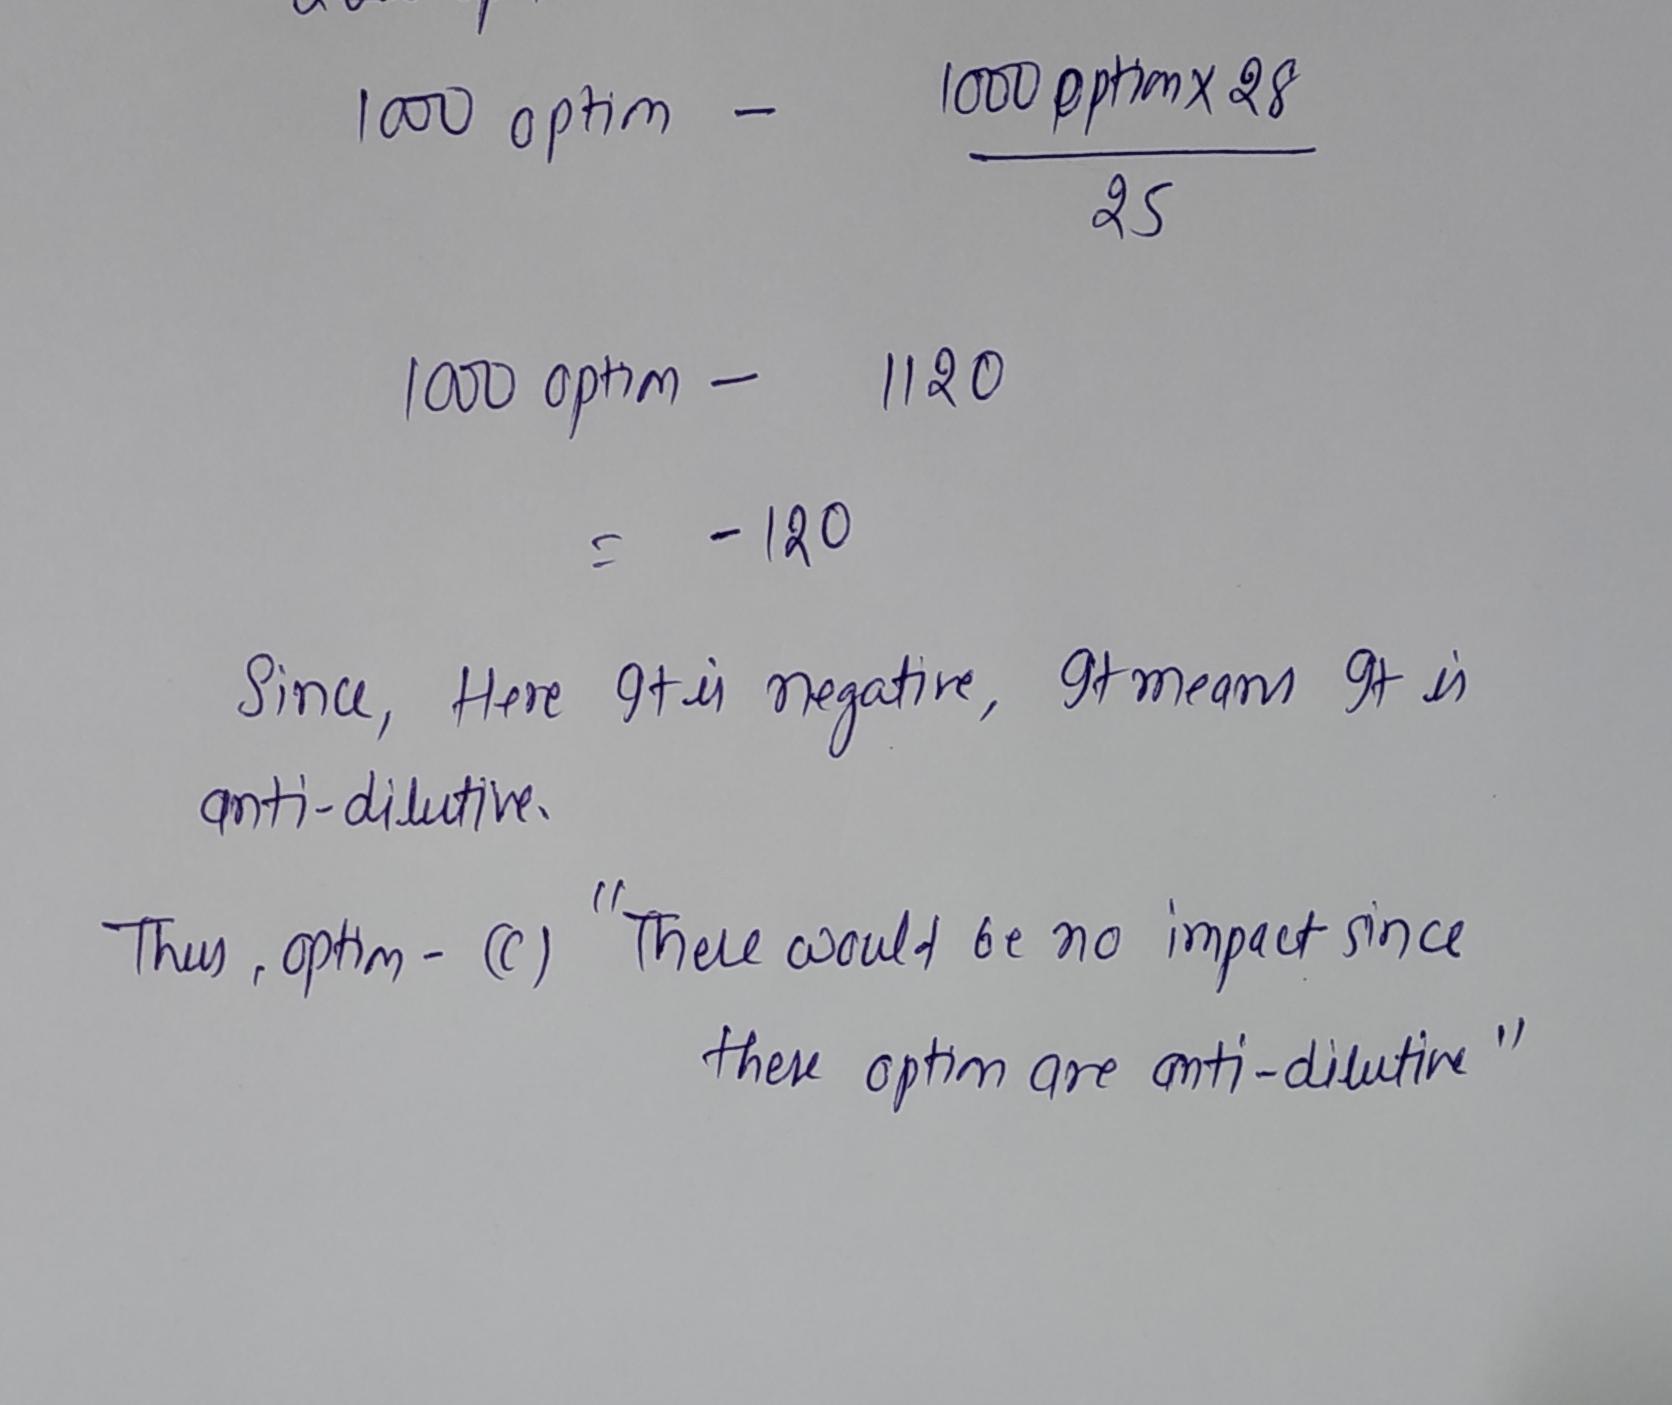 1000 option - 1000 option x 28
25
1000 option - 1120
= -120
Since, Here It is negative, It means It is
anti-dilutive.
Thus, option - (C) "There would be no impact since
these option are anti-dilutive"